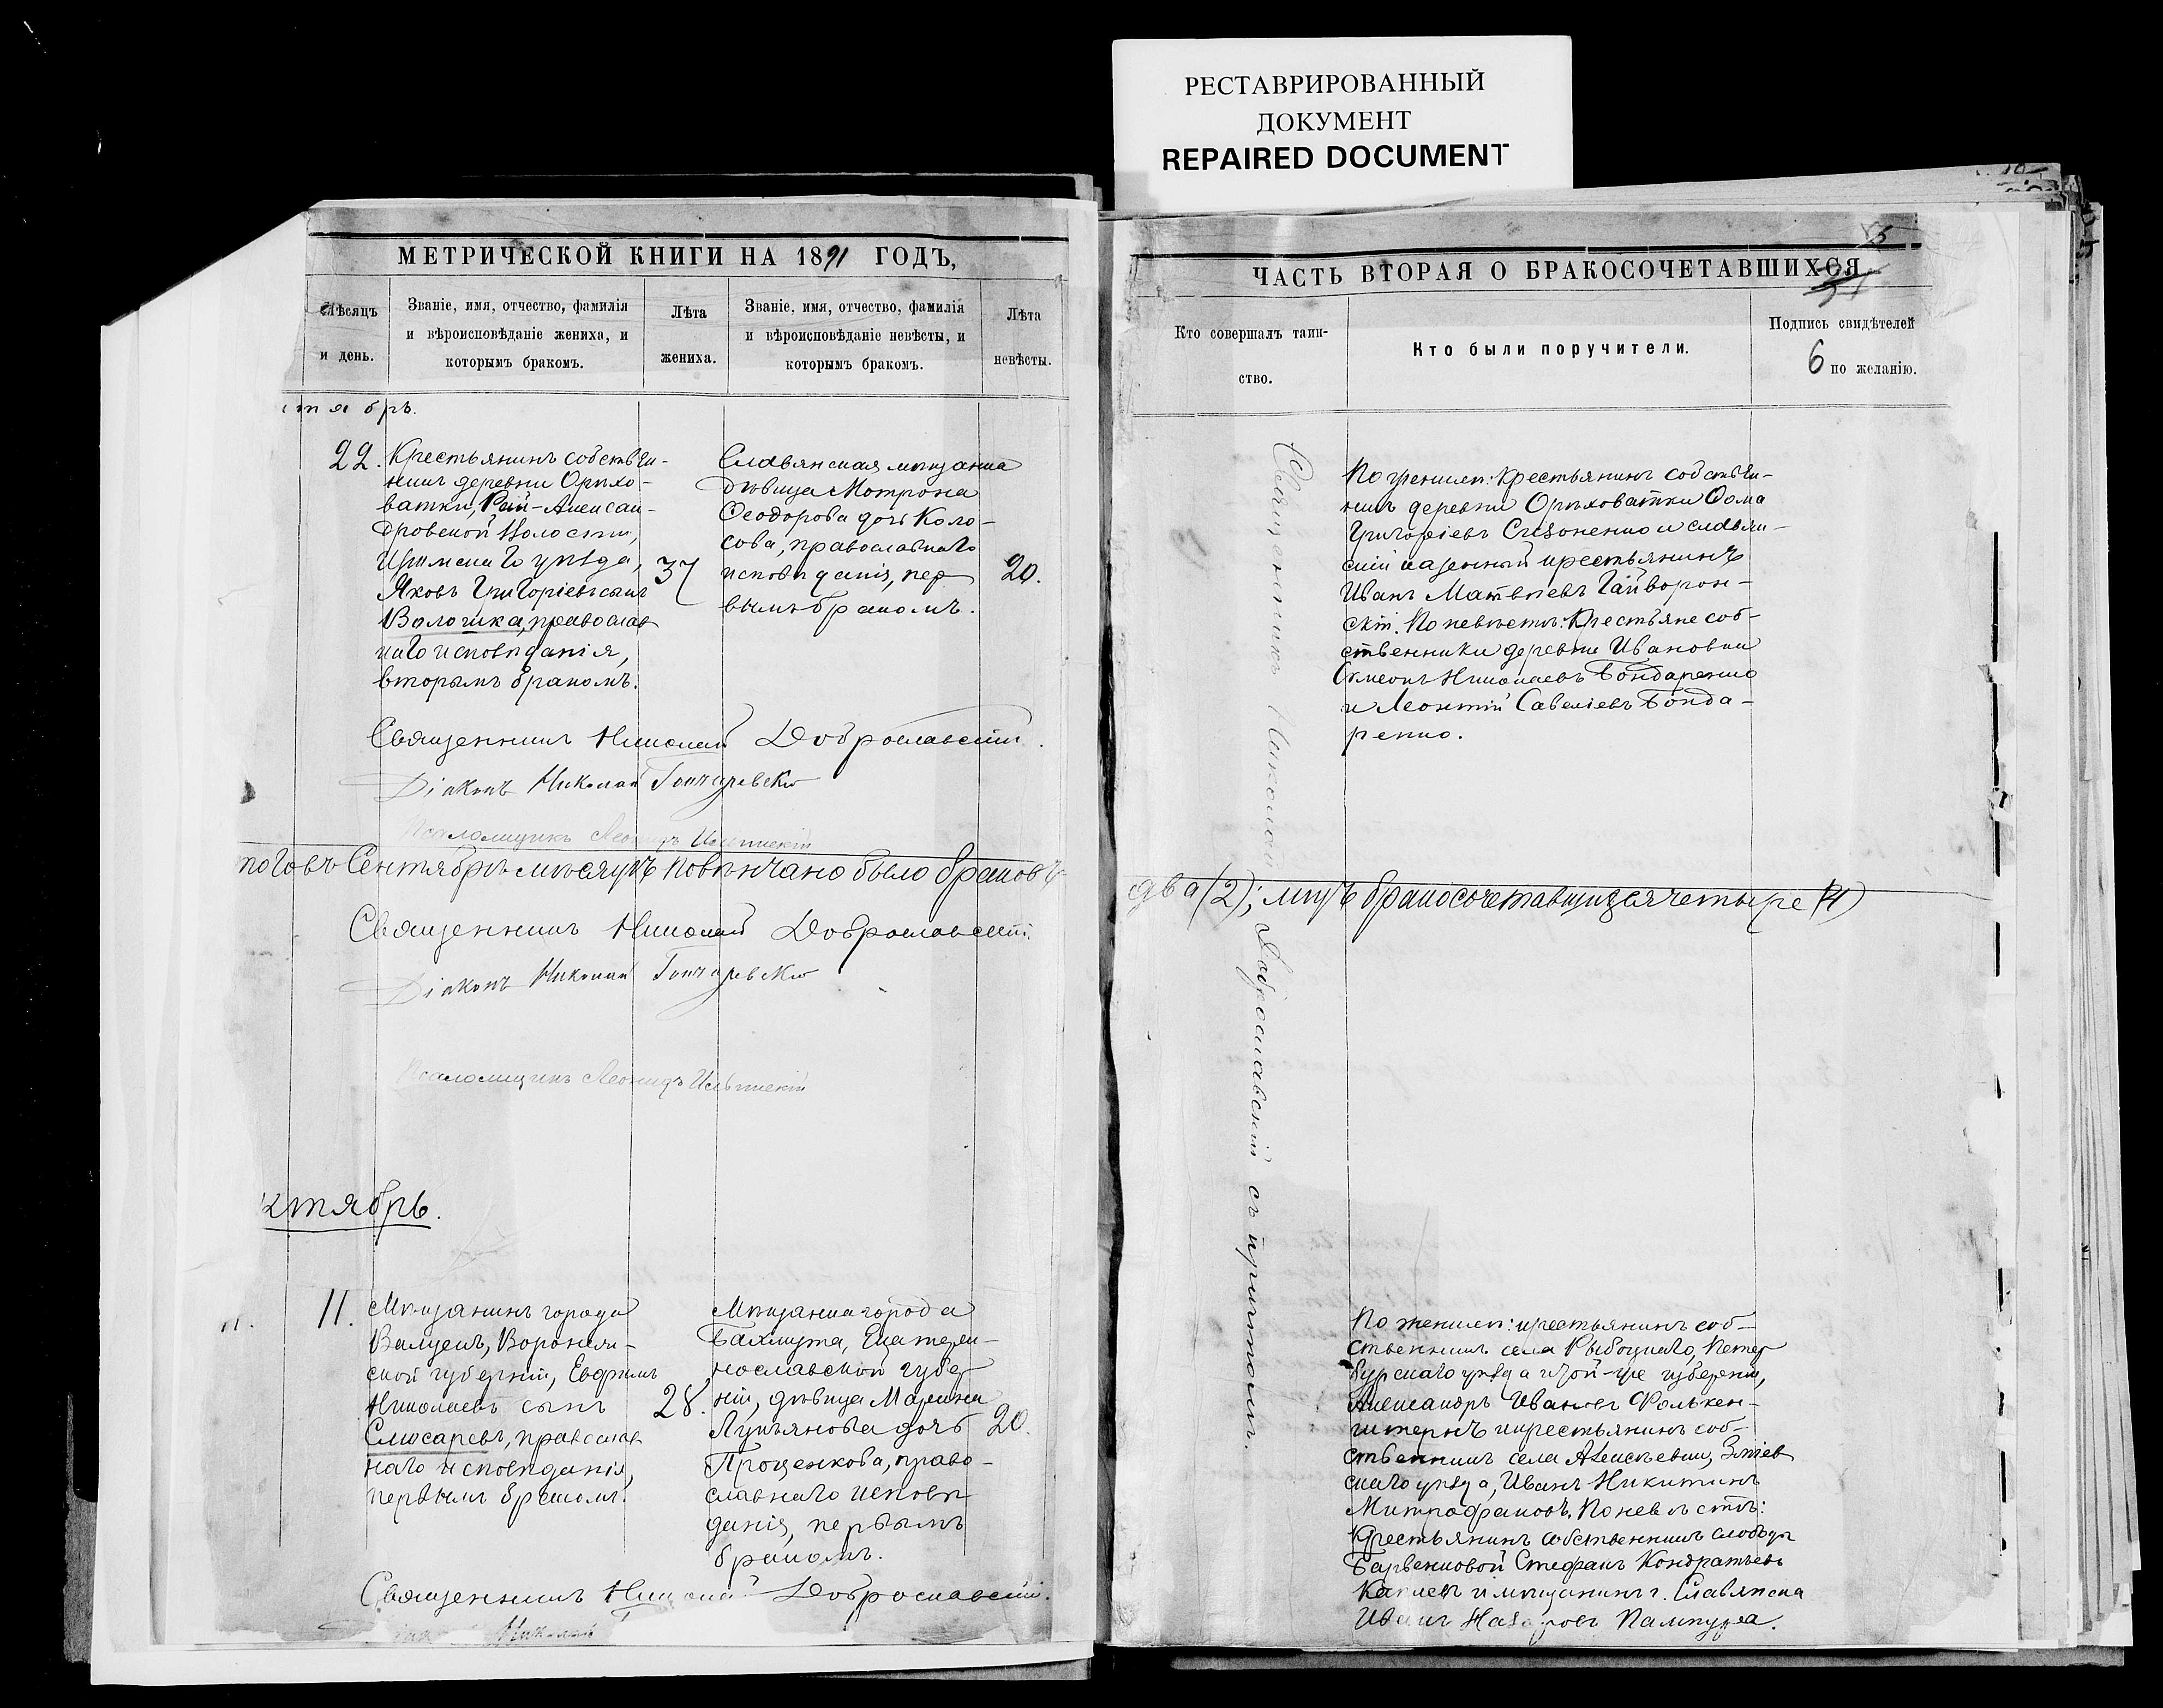 РЕСТАВРИРОВАННЫЙ
ДОКУМЕНТ
REPAIRED DOCUMENT
МЕТРИЧЕСКОЙ КНИГИ НА 1891 ГОДЪ,
Мѣсяцъ
и день.
Званіе, имя, отчество, фамилія
и вѣроисповѣданіе жениха, и
которымъ бракомъ.
Лѣта
жениха.
Званіе, имя, отчество, фамилія
и вѣроисповѣданіе невѣсты, и
которымъ бракомъ.
Лѣта
невѣсты.
тябръ.
22.
Крестьянинъ собствен-
никъ деревни Орѣхо-
ватки, Рай-Алексан-
дровской Волости,
Изюмскаго уѣзда,
Яковъ Григоріевъ сынъ
Волошка, православ
наго исповѣданія,
вторымъ бракомъ.
37
Славянская мѣщанка
дѣвица Мотрона
Ѳеодорова дочь Коло-
сова, православнаго
исповѣданія, пер
вымъ бракомъ.
20.
Священникъ Николай Доброславскій.
Діаконъ Николай Гончаревскій
Псаломщикъ Леонидъ
того въ Сентябрѣ мѣсяцѣ повѣнчано было браковъ
Священникъ Николай Доброславскій.
Діаконъ Николай Гончаревскій
Псаломщикъ Леонидъ
ктябрь.
11.
Мѣщанинъ города
Валуекъ, Воронеж-
ской губерніи, Евфимъ
Николаевъ сынъ
Слюсаревъ, православ
наго исповѣданія,
первымъ бракомъ.
28.
Мѣщанка города
Бахмута, Екатери-
нославской губер
ніи, дѣвица Марина
Лукьянова дочь
Проценкова, право-
славнаго исповѣ
данія, первымъ
бракомъ.
20.
Священникъ Николай Доброславскій.
Николай
ЧАСТЬ ВТОРАЯ О БРАКОСОЧЕТАВШИХСЯ
Кто совершалъ таин-
ство.
Кто были поручители.
Подпись свидѣтелей
6 по желанію.
Священникъ Николай Доброславскій съ причтомъ.
По женихѣ: Крестьянинъ собствен-
никъ деревни Орѣховатки Ѳома
Григоріевъ Сизоненко и славян-
скій казенный крестьянинъ
Иванъ Матвѣевъ Гайворон-
скій. По невѣстѣ: Крестьяне соб-
ственники деревни Ивановки
Симеонъ Николаевъ Бондаренко
и Леонтій Савеліевъ Бонда-
ренко.
два (2); лицъ бракосочетавшихся четыре (4)
По женихѣ: крестьянинъ соб-
ственникъ села Рыбоцкаго, Петер
бургскаго уѣзда и той-же губерніи,
Александръ Ивановъ Фолькен-
штернъ и крестьянинъ соб-
ственникъ села Алексѣевки, Зміев
скаго уѣзда, Иванъ Никитинъ
Митрофановъ. По невѣстѣ:
Крестьянинъ собственникъ слободы
Барвенковой Стефанъ Кондратьевъ
и мѣщанинъ г. Славянска
Иванъ Назаровъ